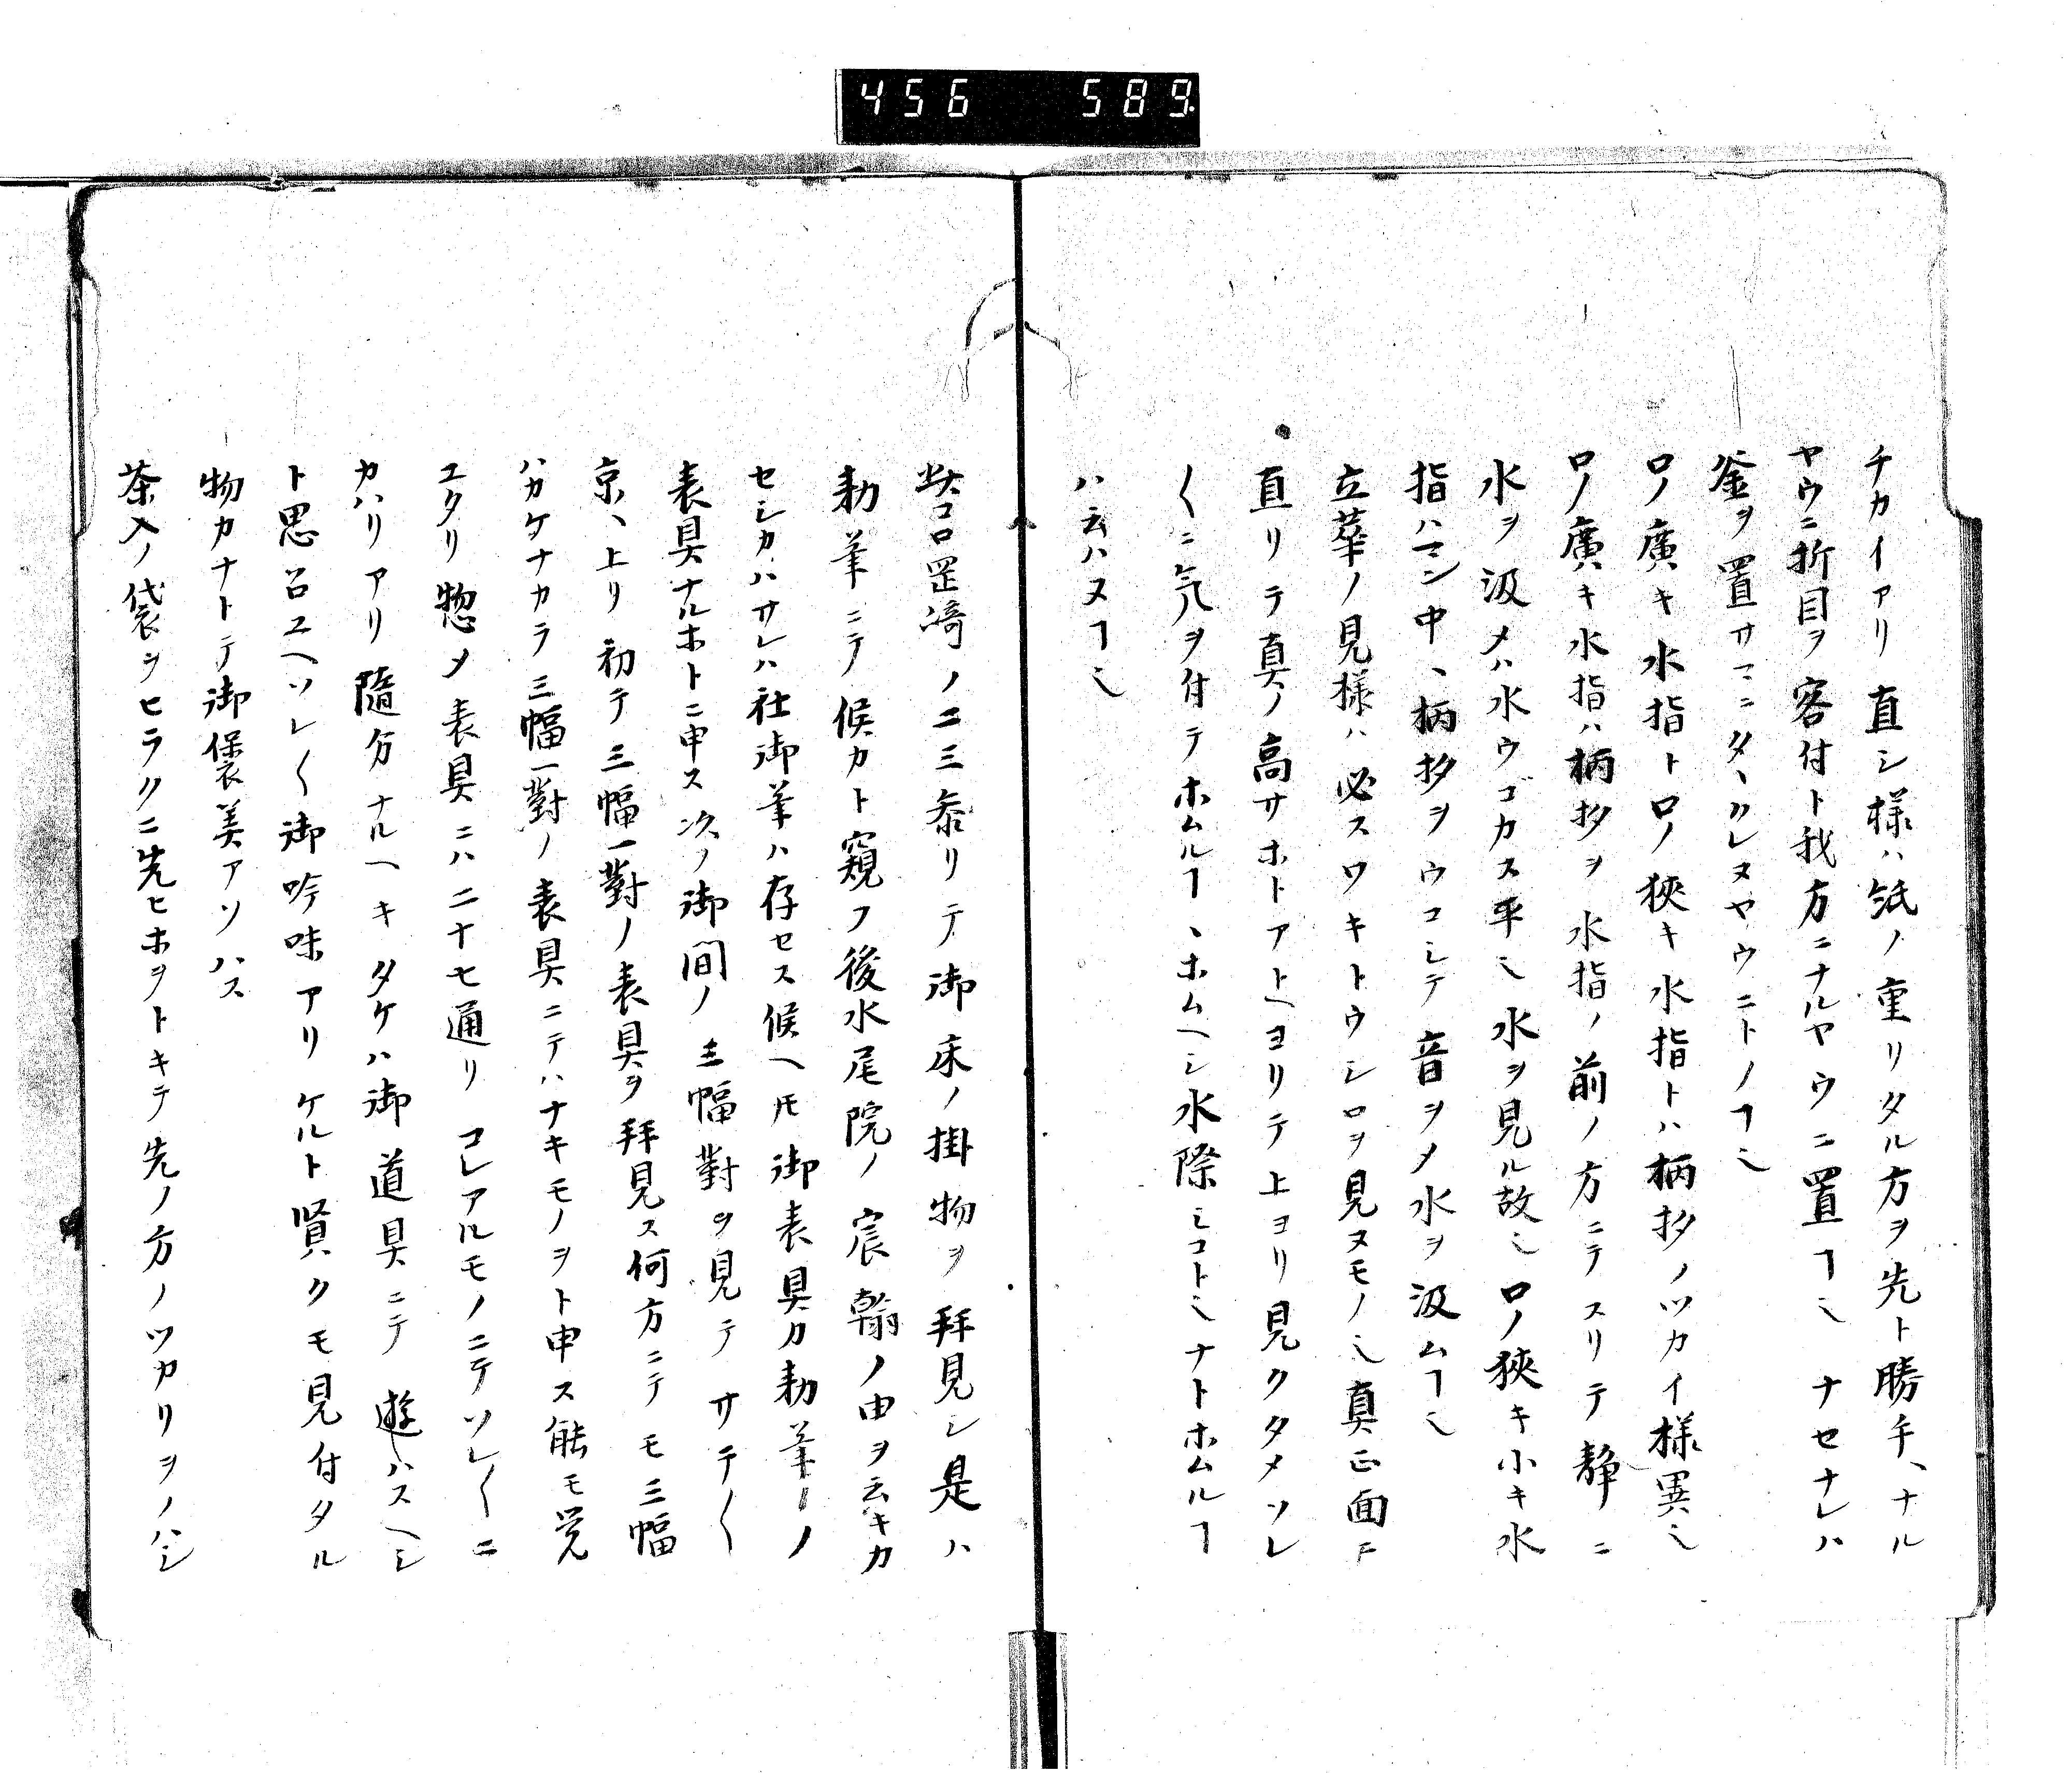 456 589
チカイアリ直シ様ハ紙ノ重リタル方ヲ先ト勝手ヽナル
ヤウニ折目ヲ客付ト我方ニナルヤウニ置ヿ也ナセナレハ
釜ヲ置サマニタヽクレヌヤウニトノヿ也
口ノ廣キ水指ト口ノ狹キ水指トハ柄杓ノツカイ様異也
口ノ廣キ水指ハ柄杓ヲ水指ノ前ノ方ニテスリテ静ニ
水ヲ汲メハ水ウゴカス平也水ヲ見ル故也口ノ狹キ小キ水
指ハマン中ヽ柄杓ヲウコシテ音ヲメ水ヲ汲ムヿ也
立華ノ見様ハ必スワキトウシロヲ見ヌモノ也真正面ニ
直リテ真ノ高サホトアトヘヨリテ上ヨリ見クタメソレ
〱ニ気ヲ付テホムルヿヽホムヘシ水際シコトミナトホムルヿ
ハ云ハヌヿ也
コロ岡﨑ノニ三参リテ御床ノ掛物ヲ拜見シ是ハ
勅筆ニテ候カト窺フ後水尾院ノ宸翰ノ由ヲ云キカ
セシカハサレハ社御筆ハ存セス候ヘ𪜈御表具カ勅筆ノ
表具ナルホトニ申ス次ノ御間ノ三幅對ヲ見テサテ〱
京ヽ上リ初テ三幅一對ノ表具ヲ拜見ス何方ニテモ三幅
ハカケナカラ三幅一對ノ表具ニテハナキモノヲト申ス能モ覚
ユクリ惣メ表具ニハ二十七通リコレアルモノニテソレ〱ニ
カハリアリ隨分ナルヘキタケハ御道具ニテ遊ハスヘシ
ト思召ユヘソレ〱御吟味アリケルト賢クモ見付タル
物カナトテ御褒美アソハス
茶入ノ袋ヲヒラクニ先ヒホヲトキテ先ノ方ノツカリヲノハシ